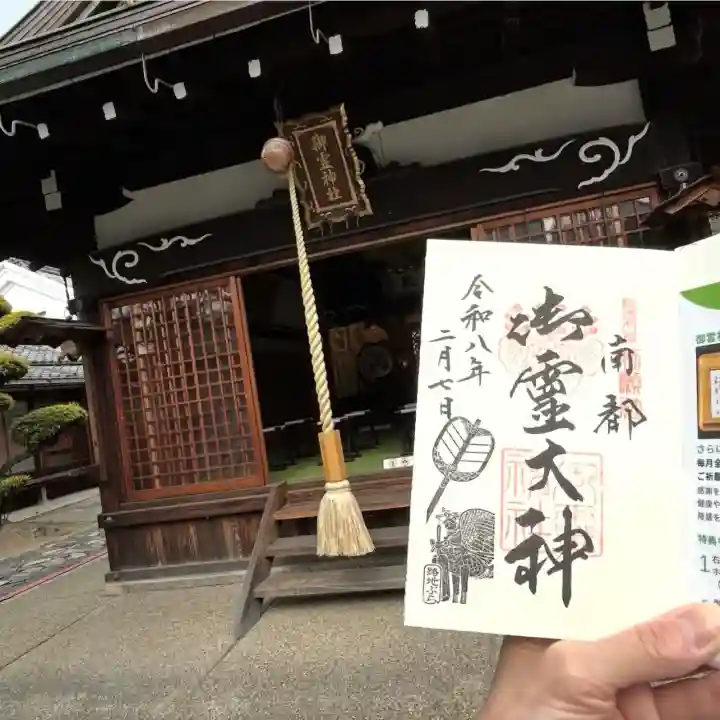 御霊神社
南都
御靈大神
令和八年
二月七日
御霊
さらに
毎月全
ご祈願
感謝を
健康や
隆盛を
特典
1